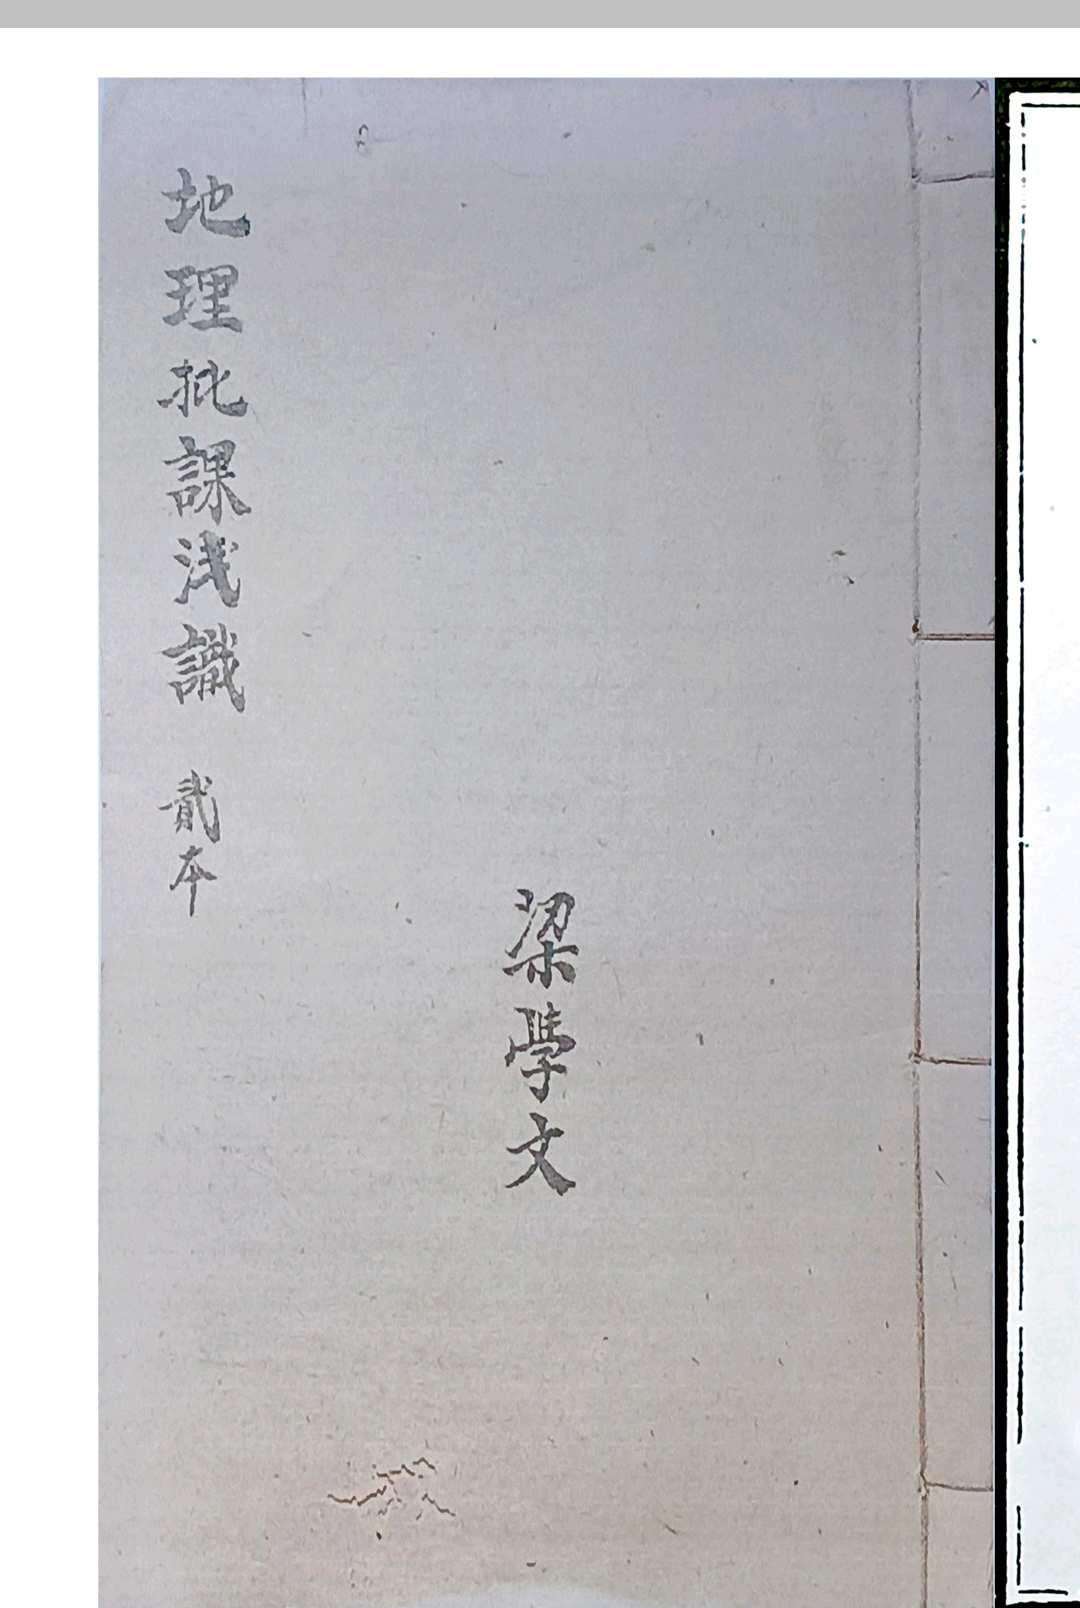 梁學文
地理批課浅識 貳本